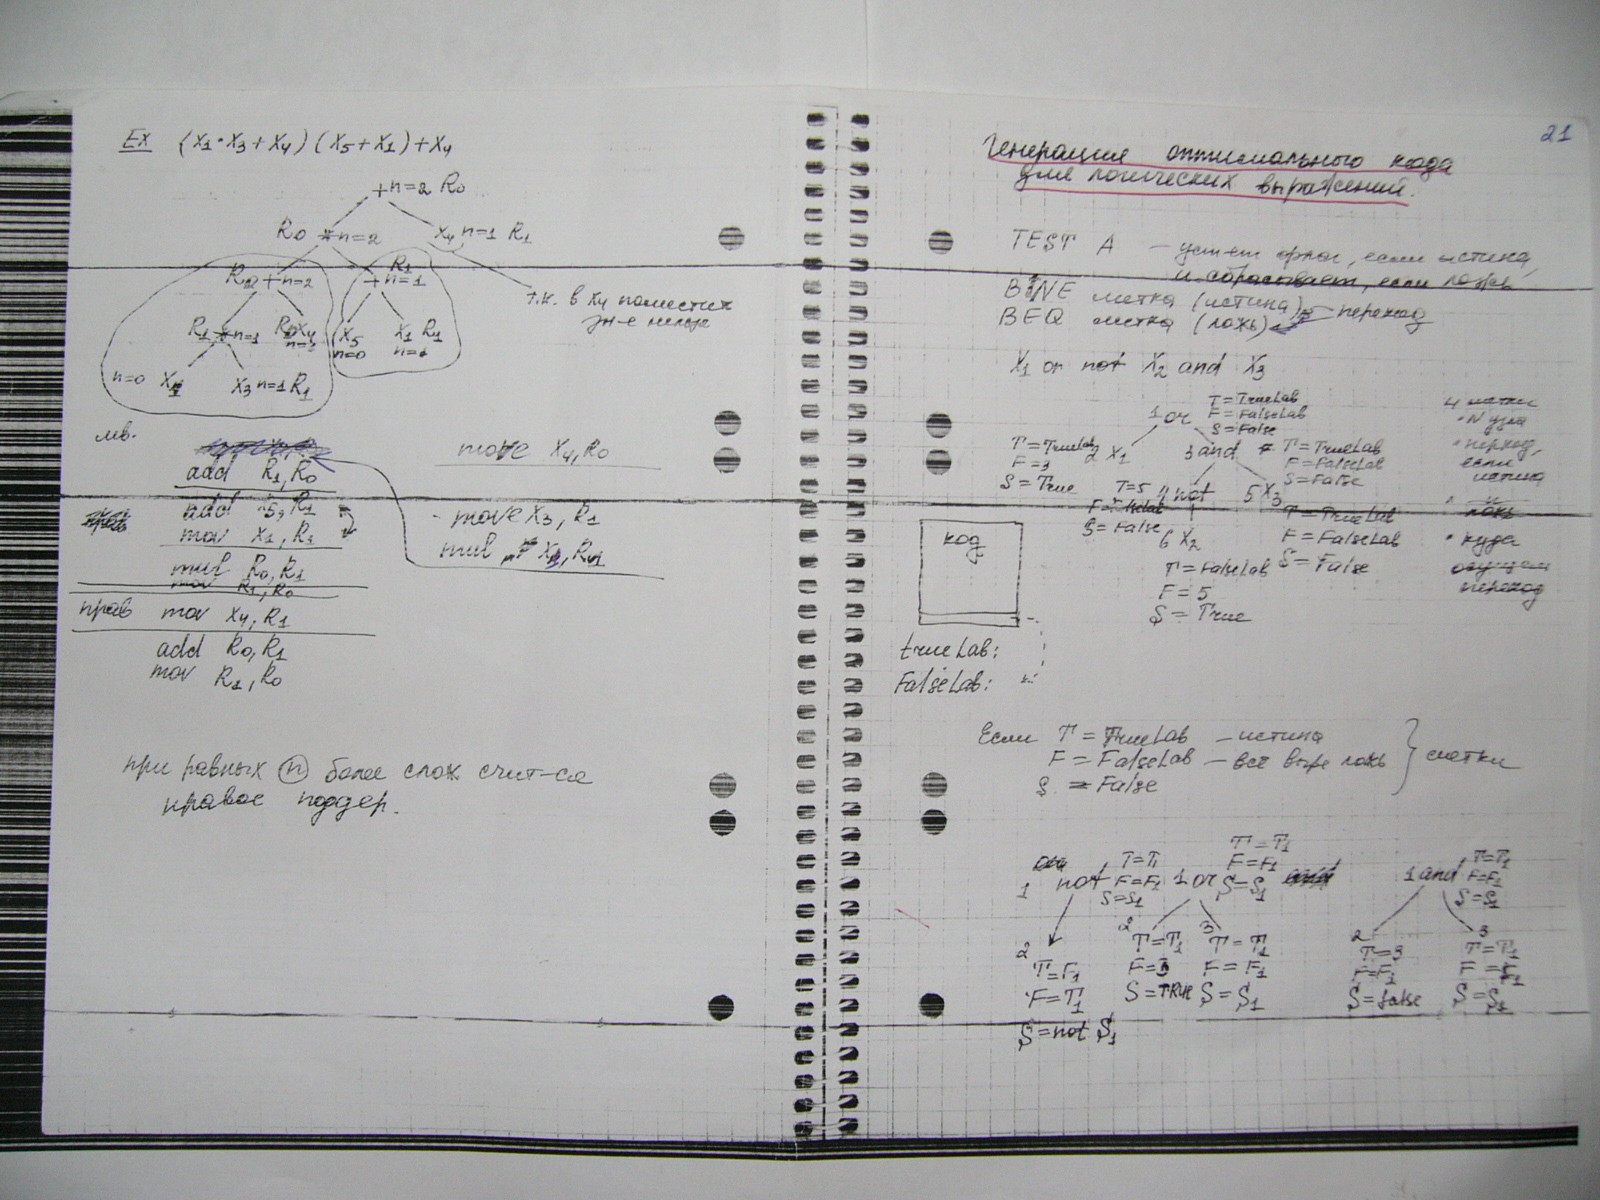 Ex (X1·X3+X4)(X5+X1)+X4
+n=2 R0
R0 *n=2
X4 n=1 R1
+n=2
R1
+n=1
т.к. в X4 поместить
R1 *n=1
X4
X5
n=0
X1 R1
n=0
X3 n=1 R1
лев.
add R1,R0
add X5,R1
mov X1,R1
mul R0,R1
mov R1,R0
прав mov X4,R1
add R0,R1
mov R1,R0
move X4,R0
move X3,R1
mul X1,R1
при равных n более слож счит-ся
правое поддер.
21
Генерация оптимального кода
для логических выражений.
TEST A — устан флаг, если истина,
и сбрасывает, если ложь
BNE метка (истина)
BEQ метка (ложь)
переход
X1 or not X2 and X3
1 or
T=TrueLab
F=FalseLab
S=False
2 X1
T=TrueLab
F=3
S=True
3 and
T=TrueLab
F=FalseLab
S=False
4 not
T=5
F=FalseLab
S=False
5 X3
T=TrueLab
F=FalseLab
S=False
6 X2
T=FalseLab
F=5
S=True
4 метки
• N узла
• переход,
если
истина
ложь
• куда
переход
код
trueLab:
FalseLab:
Если T=TrueLab — истина
F=FalseLab — всё выр ложь
S=False
метки
1 not
T=T1
F=F1
S=S1
2
T=F1
F=T1
S=not S1
1 or
T=T1
F=F1
S=S1
2
T=T1
F=3
S=TRUE
3
T=T1
F=F1
S=S1
1 and
T=T1
F=F1
S=S1
2
T=3
F=F1
S=false
3
T=T1
F=F1
S=S1